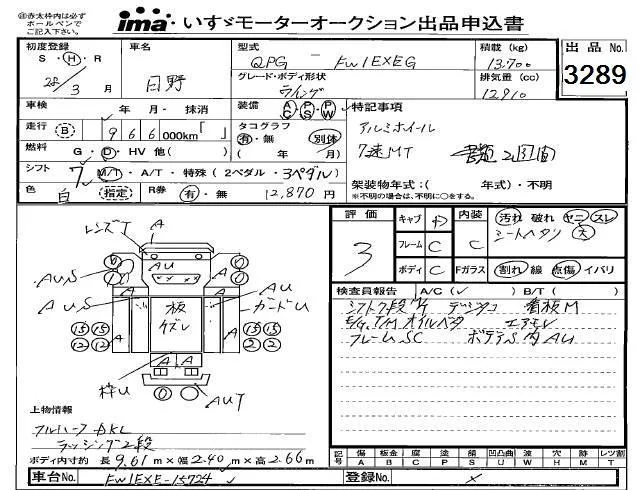 ㊟赤太枠内は必ず
ボールペンで
ご記入下さい。
ima・いすゞモーターオークション出品申込書
初度登録 S・H・R 28年 3月
車名 日野
型式 QPG - FW1EXEG
積載 (kg) 13,700
出品No. 3289
グレード・ボディ形状 ウイング
排気量 (cc) 12,910
車検 年 月・抹消
装備 AC PS PW
特記事項
走行 B 966 000km「 」
タコグラフ 有・無 別体
アルミホイール
燃料 G・D・HV 他( )
( 年 月)
7速MT 書類2週間
シフト 7 M/T・A/T・特殊 (2ペダル・3ペダル)
架装物年式:( 年式)・不明
※不明の場合は、不明に○をする。
色 白 指定
R券 有・無 12,870円
評価 3
キャブ D
内装 C
汚れ 破れ ヤニ スレ
シートヘタリ 大
フレーム C
ボディ C
Fガラス 割れ 線 点傷 イバリ
レンズT A
AU
AUS
AUS
板
ケズレ
AU
ガードU
A A A A
15 15 15 15
12 12 12 12
枠U
AUT
検査員報告 A/C(✓) B/T( )
シフト7段 デジタコ 看板M
E/G,T/M オイルベタ エアモレ
フレームSC ボデーS内AU
上物情報
フルハーフ DKL
ラッシング2段
ボディ内寸約 長9.61m×幅2.40m×高2.66m
記号 傷A 板金B 腐C 塗P 錆S 凹凸曲U 波W 穴H 跡M レツ割T
車台No. FW1EXE-15724
登録No. ×